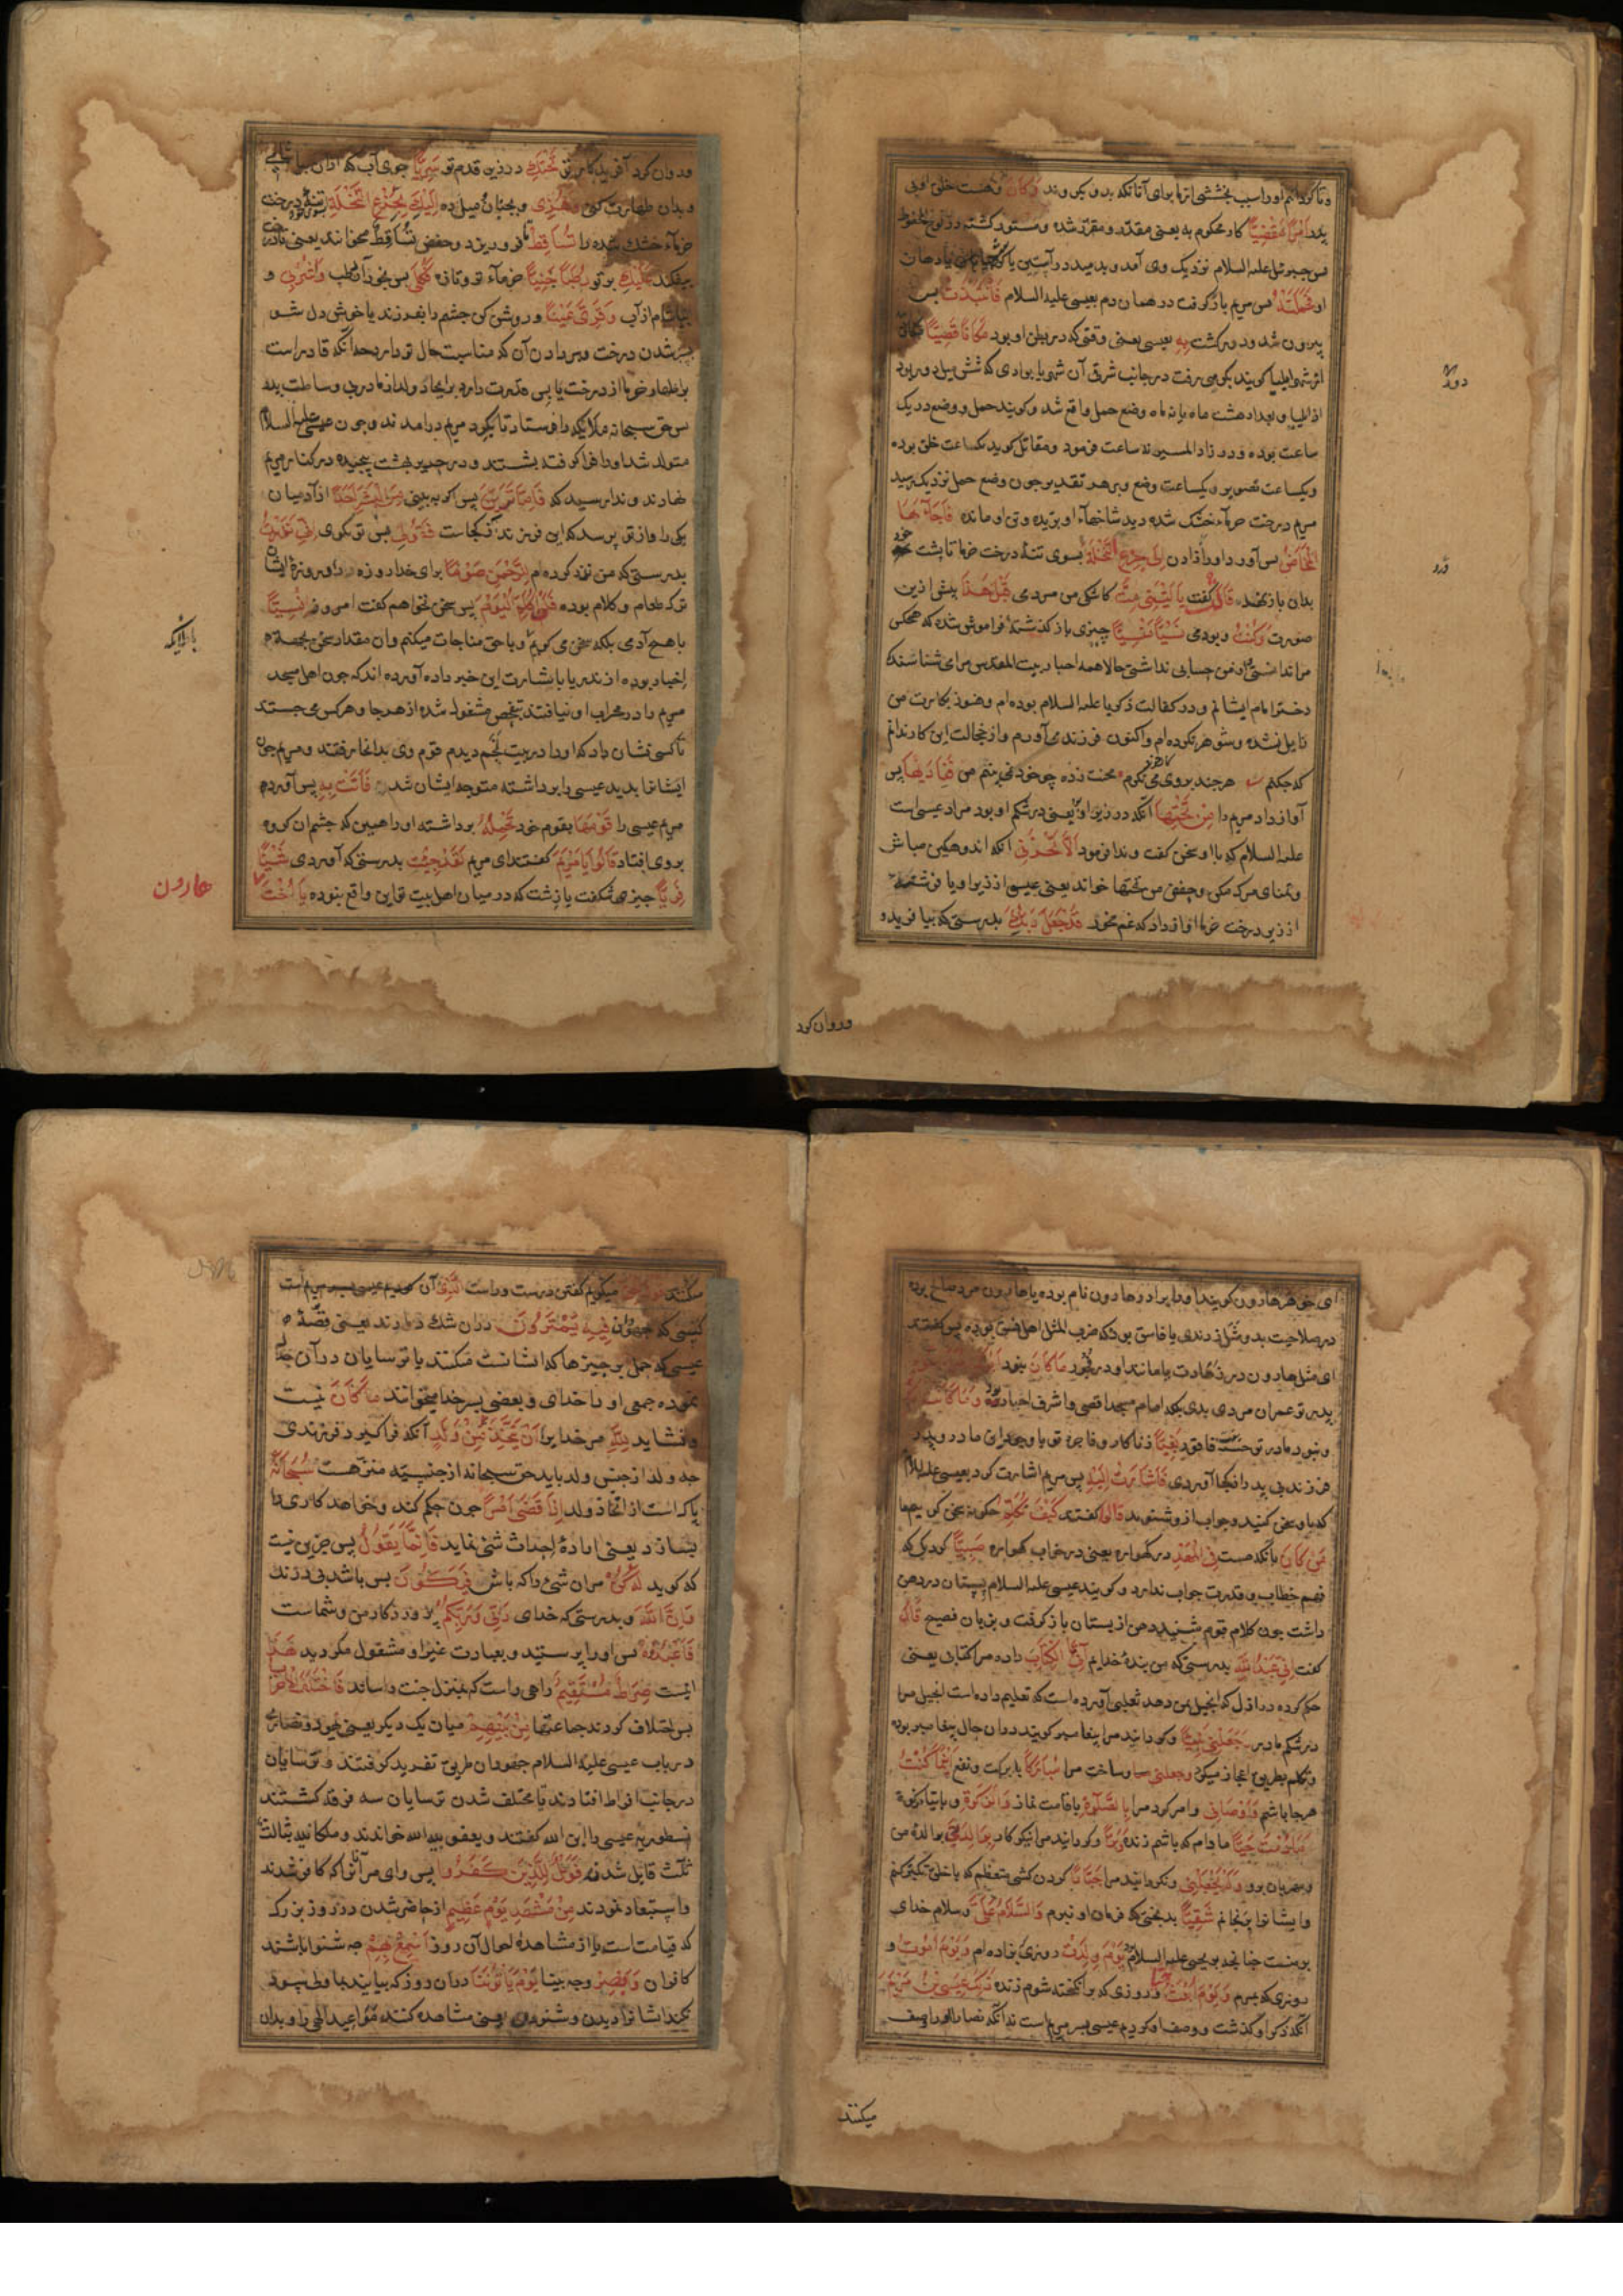 و تا گردانیم او را سبب بخششی از ما برای آنانکه بدو بگروند وَكَانَ و هست خلق او بی
پدر اَمْرًا مَقْضِيًّا کار محکوم به یعنی مقدر و مقرر شده و مستور کشته در لوح محفوظ
پس جبرئیل علیه السلام نزدیک وی آمد و بدمید در آستین یا گریبان یا دهان
او فَحَمَلَتْهُ پس مریم باز گرفت در همان دم بعیسی علیه السلام فَانْتَبَذَتْ پس
بیرون شد و دور گشت بِهِ بعیسی یعنی وقتی که در بطن او بود مَكَانًا قَصِيًّا مکانی
از شهر ایلیا گویند بکوهی رفت در جانب شرقی آن شهر یا بوادی که شش میل دور بود
از ایلیا و بعد از هشت ماه یا نه ماه وضع حمل واقع شد و گویند حمل و وضع در یک
ساعت بوده و در زاد المسیر نه ساعت فرمود و مقاتل گوید یکساعت خلق بوده
و یکساعت تصویر و یکساعت وضع و بر هر تقدیر چون وضع حمل نزدیک رسید
مریم درخت خرماء خشک شده دید شاخهاء او بریده و تن او مانده فَاَجَاءَهَا
الْمَخَاضُ پس آورد او را زادن اِلٰى جِذْعِ النَّخْلَةِ بسوی تنهٔ درخت خرما تا پشت خود
بدان باز نهد قَالَتْ گفت يَا لَيْتَنِي مِتُّ کاشکی من مردمی قَبْلَ هٰذَا پیش ازین
صورت وَكُنْتُ و بودمی نَسْيًا مَنْسِيًّا چیزی باز گذشتهٔ فراموش شده که هیچکس
مرا ندانستی و از من حسابی نداشتی حالا همه احبار بیت المقدس مرا می شناسند که
دختر امام ایشانم و در کفالت زکریا علیه السلام بوده ام و هنوز بکارت من
زایل نشده و شوهر نکرده ام و اکنون فرزند می آورم و از خجالت این کار ندانم
که چکنم هر چند بروی می نگرم محنت زده چو خود نمی بینم من فَنَادٰيهَا پس
آواز داد مریم را مِنْ تَحْتِهَا آنکه در زیر او یعنی در شکم او بود مراد عیسی است
علیه السلام که با او سخن گفت و ندا فرمود اَلَّا تَحْزَنِي آنکه اندوهگین مباش
و تمنای مرگ مکن و حفص مِن تحتها خواند یعنی عیسی از زیر او یا فرشته
از زیر درخت خرما آواز داد که غم مخور قَدْ جَعَلَ رَبُّكِ بدرستی که بیافرید و
و روان کرد
و روان کرد آفریدکار تو تَحْتَكِ در زیر قدم تو سَرِيًّا جوی آب که ازان بیاشامی
و بدان طهارت کنی وَهُزِّي و بجنبان و میل ده اِلَيْكِ بِجِذْعِ النَّخْلَةِ بسوی خود تنهٔ درخت
خرماء خشک شده را تُسَاقِطْ تا فرو ریزد و حفص تُسَاقِط میخواند یعنی تا درخت
بیفکند عَلَيْكِ بر تو رُطَبًا جَنِيًّا خرماء تر و تازه فَكُلِي پس بخور آن رطب وَاشْرَبِي و
بیاشام از آب وَقَرِّي عَيْنًا و روشن کن چشم را بفرزند یا خوش دل شو
بسبز شدن درخت و بر دادن آن که مناسبت حال تو دارد چه آنکه قادر است
بر اظهار خرما از درخت یابس قدرت دارد بر ایجاد ولد از مادر بی وساطت پدر
پس حق سبحانه ملائکه را فرستاد تا بگرد مریم درآمدند و چون عیسی علیه السلام
متولد شد او را فرا گرفتند بشستند و در حریر بهشت پیچیده در کنار مریم
نهادند و ندا رسید که فَاِمَّا تَرَيِنَّ پس اگر به بینی مِنَ الْبَشَرِ اَحَدًا از آدمیان
یکی را و از تو پرسد که این فرزند از کجاست فَقُولِي پس تو بگوی اِنِّي نَذَرْتُ
بدرستی که من نذر کرده ام لِلرَّحْمٰنِ صَوْمًا برای خدا روزه را و روزهٔ ایشان
ترک طعام و کلام بوده فَلَنْ اُكَلِّمَ الْيَوْمَ پس سخن نخواهم گفت امروز اِنْسِيًّا
با هیچ آدمی بلکه سخن می گویم با ملائکه و با حق مناجات میکنم و آن مقدار سخن بجهة
اخبار بوده از نذر یا باشارت این خبر داده آورده اند که چون اهل مسجد
مریم را در محراب او نیافتند بتفحص مشغول شده از هر جا و هر کس می جستند
تا کسی نشان داد که او را در بیت لحم دیدم قوم وی بدانجا رفتند و مریم چون
ایشانرا بدید عیسی را برداشته متوجه ایشان شد فَاَتَتْ بِهِ پس آورد
مریم عیسی را قَوْمَهَا بقوم خود تَحْمِلُهُ برداشته او را همین که چشم آن گروه
بر وی افتاد قَالُوا يَا مَرْيَمُ گفتند ای مریم لَقَدْ جِئْتِ بدرستی که آوردی شَيْئًا
فَرِيًّا چیزی شگفت یا زشت که در میان اهل بیت تو این واقع نبوده يَا اُخْتَ
هارون
با ملائکه
ای خواهر هارون گویند او را برادر هارون نام بوده یا هارون مرد صالح بوده
در صلاحیت بدو مثل زدندی یا فاسق بود که ضرب المثل اهل فسق بوده پس گفتند
ای مثل هارون در زهادت یا مانند او در فجور مَا كَانَ نبود اَبُوكِ
پدر تو عمران مردی بدی بلکه امام مسجد اقصی و اشرف احبار بود وَمَا كَانَتْ
و نبود مادر تو حنه بنت فاقود بَغِيًّا زناکار و فاجره تو با وجود این مادر و پدر
فرزند بی پدر از کجا آوردی فَاَشَارَتْ اِلَيْهِ پس مریم اشارت کرد بعیسی علیه السلام
که با او سخن کنید و جواب ازو شنوید قَالُوا گفتند كَيْفَ نُكَلِّمُ چگونه سخن گوییم ما
مَنْ كَانَ با آنکه هست فِي الْمَهْدِ در گهواره یعنی در خواب گهواره صَبِيًّا کودکی که
فهم خطاب و قدرت جواب ندارد و گویند عیسی علیه السلام پستان در دهن
داشت چون کلام قوم شنید دهن از پستان باز گرفت و بزبان فصیح قَالَ
گفت اِنِّي عَبْدُ اللّٰهِ بدرستی که من بندهٔ خدایم اٰتَانِيَ الْكِتَابَ داده مرا کتابی یعنی
حکم کرده در ازل که انجیل بمن دهد ثعلبی آورده است که تعلیم داده است انجیل مرا
در شکم مادر وَجَعَلَنِي نَبِيًّا و گردانید مرا پیغامبر گویند در آن حال پیغامبر بوده
و تکلم بطریق اعجاز میکرد وَجَعَلَنِي و ساخت مرا مُبَارَكًا با برکت و نفع اَيْنَمَا كُنْتُ
هر جا باشم وَاَوْصَانِي و امر کرد مرا بِالصَّلٰوةِ باقامت نماز وَالزَّكٰوةِ و بایتاء زکوة
مَا دُمْتُ حَيًّا مادام که باشم زنده وَبَرًّا و گردانید مرا نیکوکار بِوَالِدَتِي بوالدهٔ من
و مهربان برو وَلَمْ يَجْعَلْنِي و نگردانید مرا جَبَّارًا گردن کشی متعظم که با خلق تکبر کنم
و ایشانرا برنجانم شَقِيًّا بدبختی که فرمان او نبرم وَالسَّلَامُ عَلَيَّ و سلام خدای
بر منست چنانچه بر یحیی علیه السلام بود يَوْمَ وُلِدْتُ روزی که بزاده ام وَيَوْمَ اَمُوتُ و
روزی که بمیرم وَيَوْمَ اُبْعَثُ حَيًّا و روزی که برانگیخته شوم زنده ذٰلِكَ عِيسَى ابْنُ مَرْيَمَ
آنکه ذکر او گذشت و وصف او کردیم عیسی پسر مریم است نه آنکه نصارا او را وصف
میکنند
میکنند میگویم گفتن درست و راست الَّذِي آن گوییم عیسی پسر مریم است
کسی که جهودان فِيهِ يَمْتَرُونَ دران شک دارند یعنی قصهٔ
عیسی که حمل بر چیزها که انشانست میکنند یا ترسایان در آن
نموده جمعی او را خدای و بعضی پسر خدا میخوانند مَا كَانَ نیست
و نشاید لِلّٰهِ مر خدایرا اَنْ يَتَّخِذَ مِنْ وَلَدٍ آنکه فرا گیرد فرزندی
چه ولد از جنس والد باید حق سبحانه از جنسیه منزهست سُبْحَانَهُ
پاک است از اتخاذ ولد اِذَا قَضٰى اَمْرًا چون حکم کند و خواهد کاری را
بسازد یعنی ارادهٔ احداث شئ نماید فَاِنَّمَا يَقُولُ پس جز این نیست
که گوید لَهُ كُنْ مران شئ را که باش فَيَكُونُ پس باشد بی درنگ
وَاِنَّ اللّٰهَ و بدرستی که خدای رَبِّي وَرَبُّكُمْ پروردگار من و شماست
فَاعْبُدُوهُ پس او را پرستید و بعبارت غیر او مشغول مگردید هٰذَا
اینست صِرَاطٌ مُسْتَقِيمٌ راهی راست که بمنزل جنت رساند فَاخْتَلَفَ الْاَحْزَابُ
پس اختلاف کردند جماعتها مِنْ بَيْنِهِمْ میان یک دیگر یعنی یهود و نصاری
در باب عیسی علیه السلام جهودان طریق تفرید گرفتند و ترسایان
در جانب افراط افتادند یا مختلف شدن ترسایان سه فرقه گشتند
نسطوریه عیسی را ابن الله گفتند و یعقوبیه الله خواندند و ملکانیه بثالث
ثلث قایل شدند فَوَيْلٌ لِلَّذِينَ كَفَرُوا پس وای مر آنانرا که کافر شدند
و استبعاد نمودند مِنْ مَشْهَدِ يَوْمٍ عَظِيمٍ از حاضر شدن در روز بزرگ
که قیامت است یا از مشاهدهٔ احوال آن روز اَسْمِعْ بِهِمْ چه شنوا باشند
کافران وَاَبْصِرْ و چه بینا يَوْمَ يَاْتُونَنَا دران روز که بیایند بما
نکند ایشانرا دیدن و شنودن یعنی مشاهده کنند مواعید الهی را و بدان